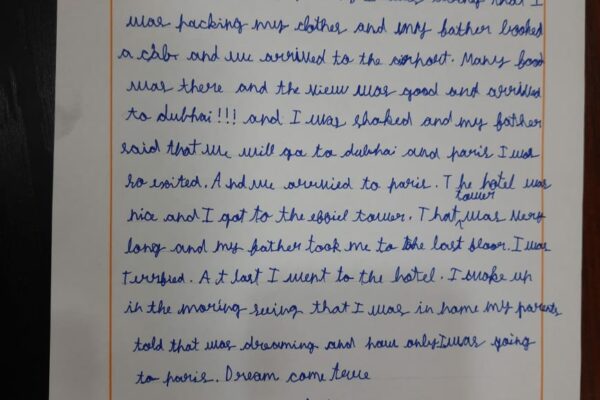 was packing my clothes and my father booked
a cab and we arrived to the airport. Many food
was there and the view was good and arrived
to dubhai!!! and I was shaked and my father
said that we will go to dubhai and paris I was
so exited. And we arruied to paris. The hotel was
nice and I got to the effiel tower. That tower was very
long and my father took me to the last floor. I was
Terrfied. At last I went to the hotel. I woke up
in the moring seing that I was in home my parents
told that was dreaming and now only I was going
to paris. Dream come true